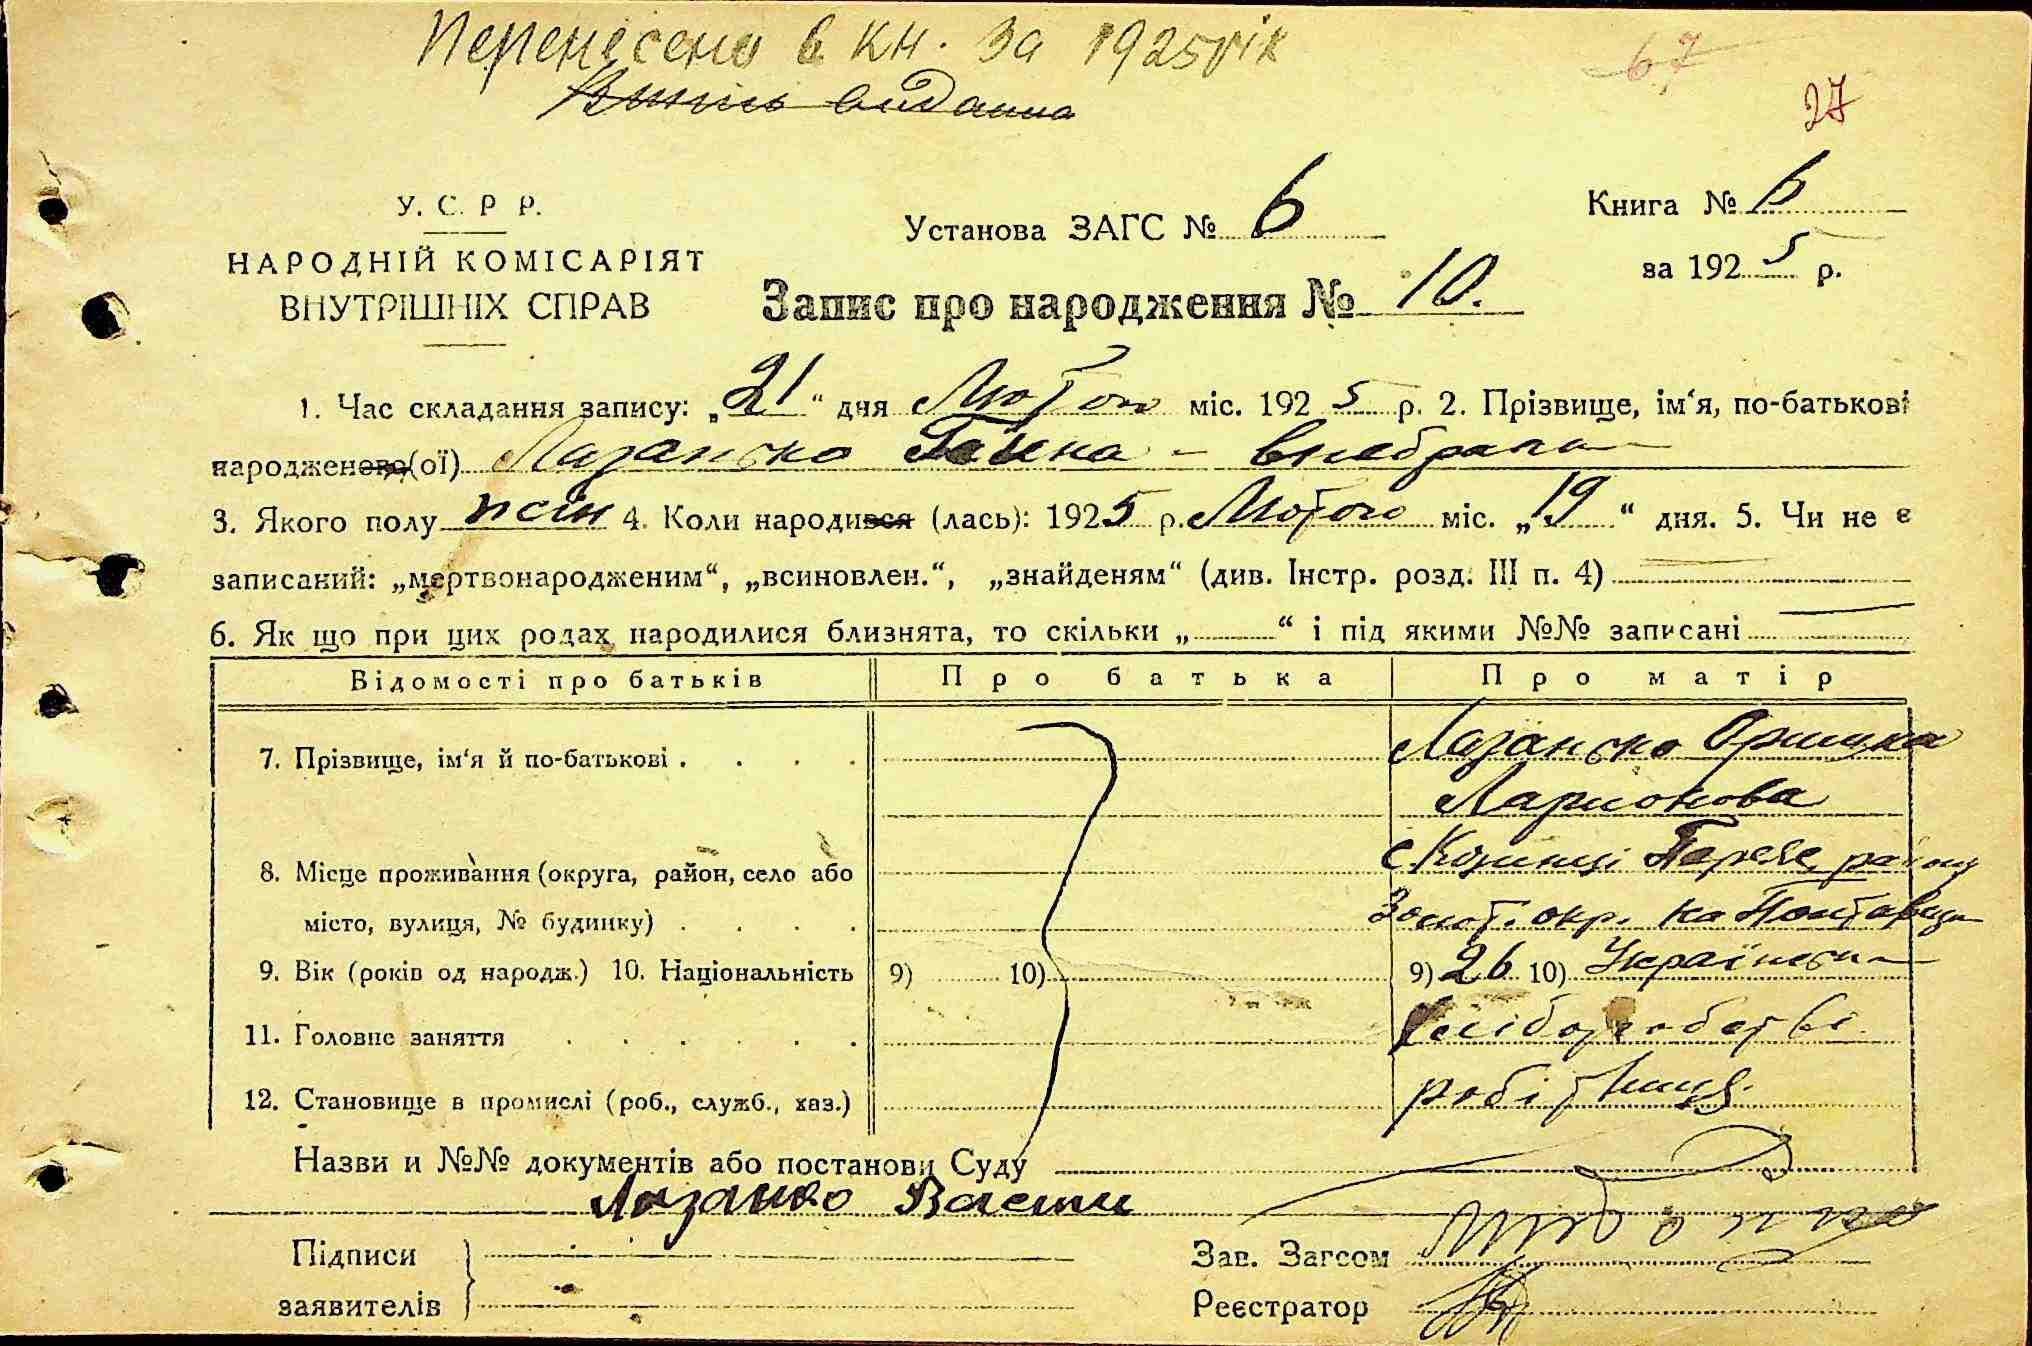 Перенесено в кн. за 1925 рік
Випис видана
67
27
У. С. Р. Р.
НАРОДНІЙ КОМІСАРІЯТ
ВНУТРІШНІХ СПРАВ
Установа ЗАГС № 6
Книга № 6
за 1925 р.
Запис про народження № 10.
1. Час складання запису: „21“ дня Лютого міс. 1925 р. 2. Прізвище, ім‘я, по-батькові
народженого(ої) Лазанько Ганна -
3. Якого полу жін 4. Коли народився (лась): 1925 р. Лютого міс. „19“ дня. 5. Чи не є
записаний: „мертвонародженим“, „всиновлен.“, „знайденям“ (див. Інстр. розд. III п. 4)
6. Як що при цих родах народилися близнята, то скільки „ “ і під якими №№ записані
Відомості про батьків Про батька Про матір
7. Прізвище, ім‘я й по-батькові . . . . Лазанько Оришка
Ларионова
8. Місце проживання (округа, район, село або с Козинці Переяс району
місто, вулиця, № будинку) . . . . Золот. окр. на Полтавщ
9. Вік (років од народж.) 10. Національність 9) 10) 9) 26 10) Українська
11. Головне заняття . . . . . . хліборобстві
12. Становище в промислі (роб., служб., хаз.) робітниця.
Назви и №№ документів або постанови Суду
Лазанко
Підписи
заявителів
Зав. Загсом
Реєстратор